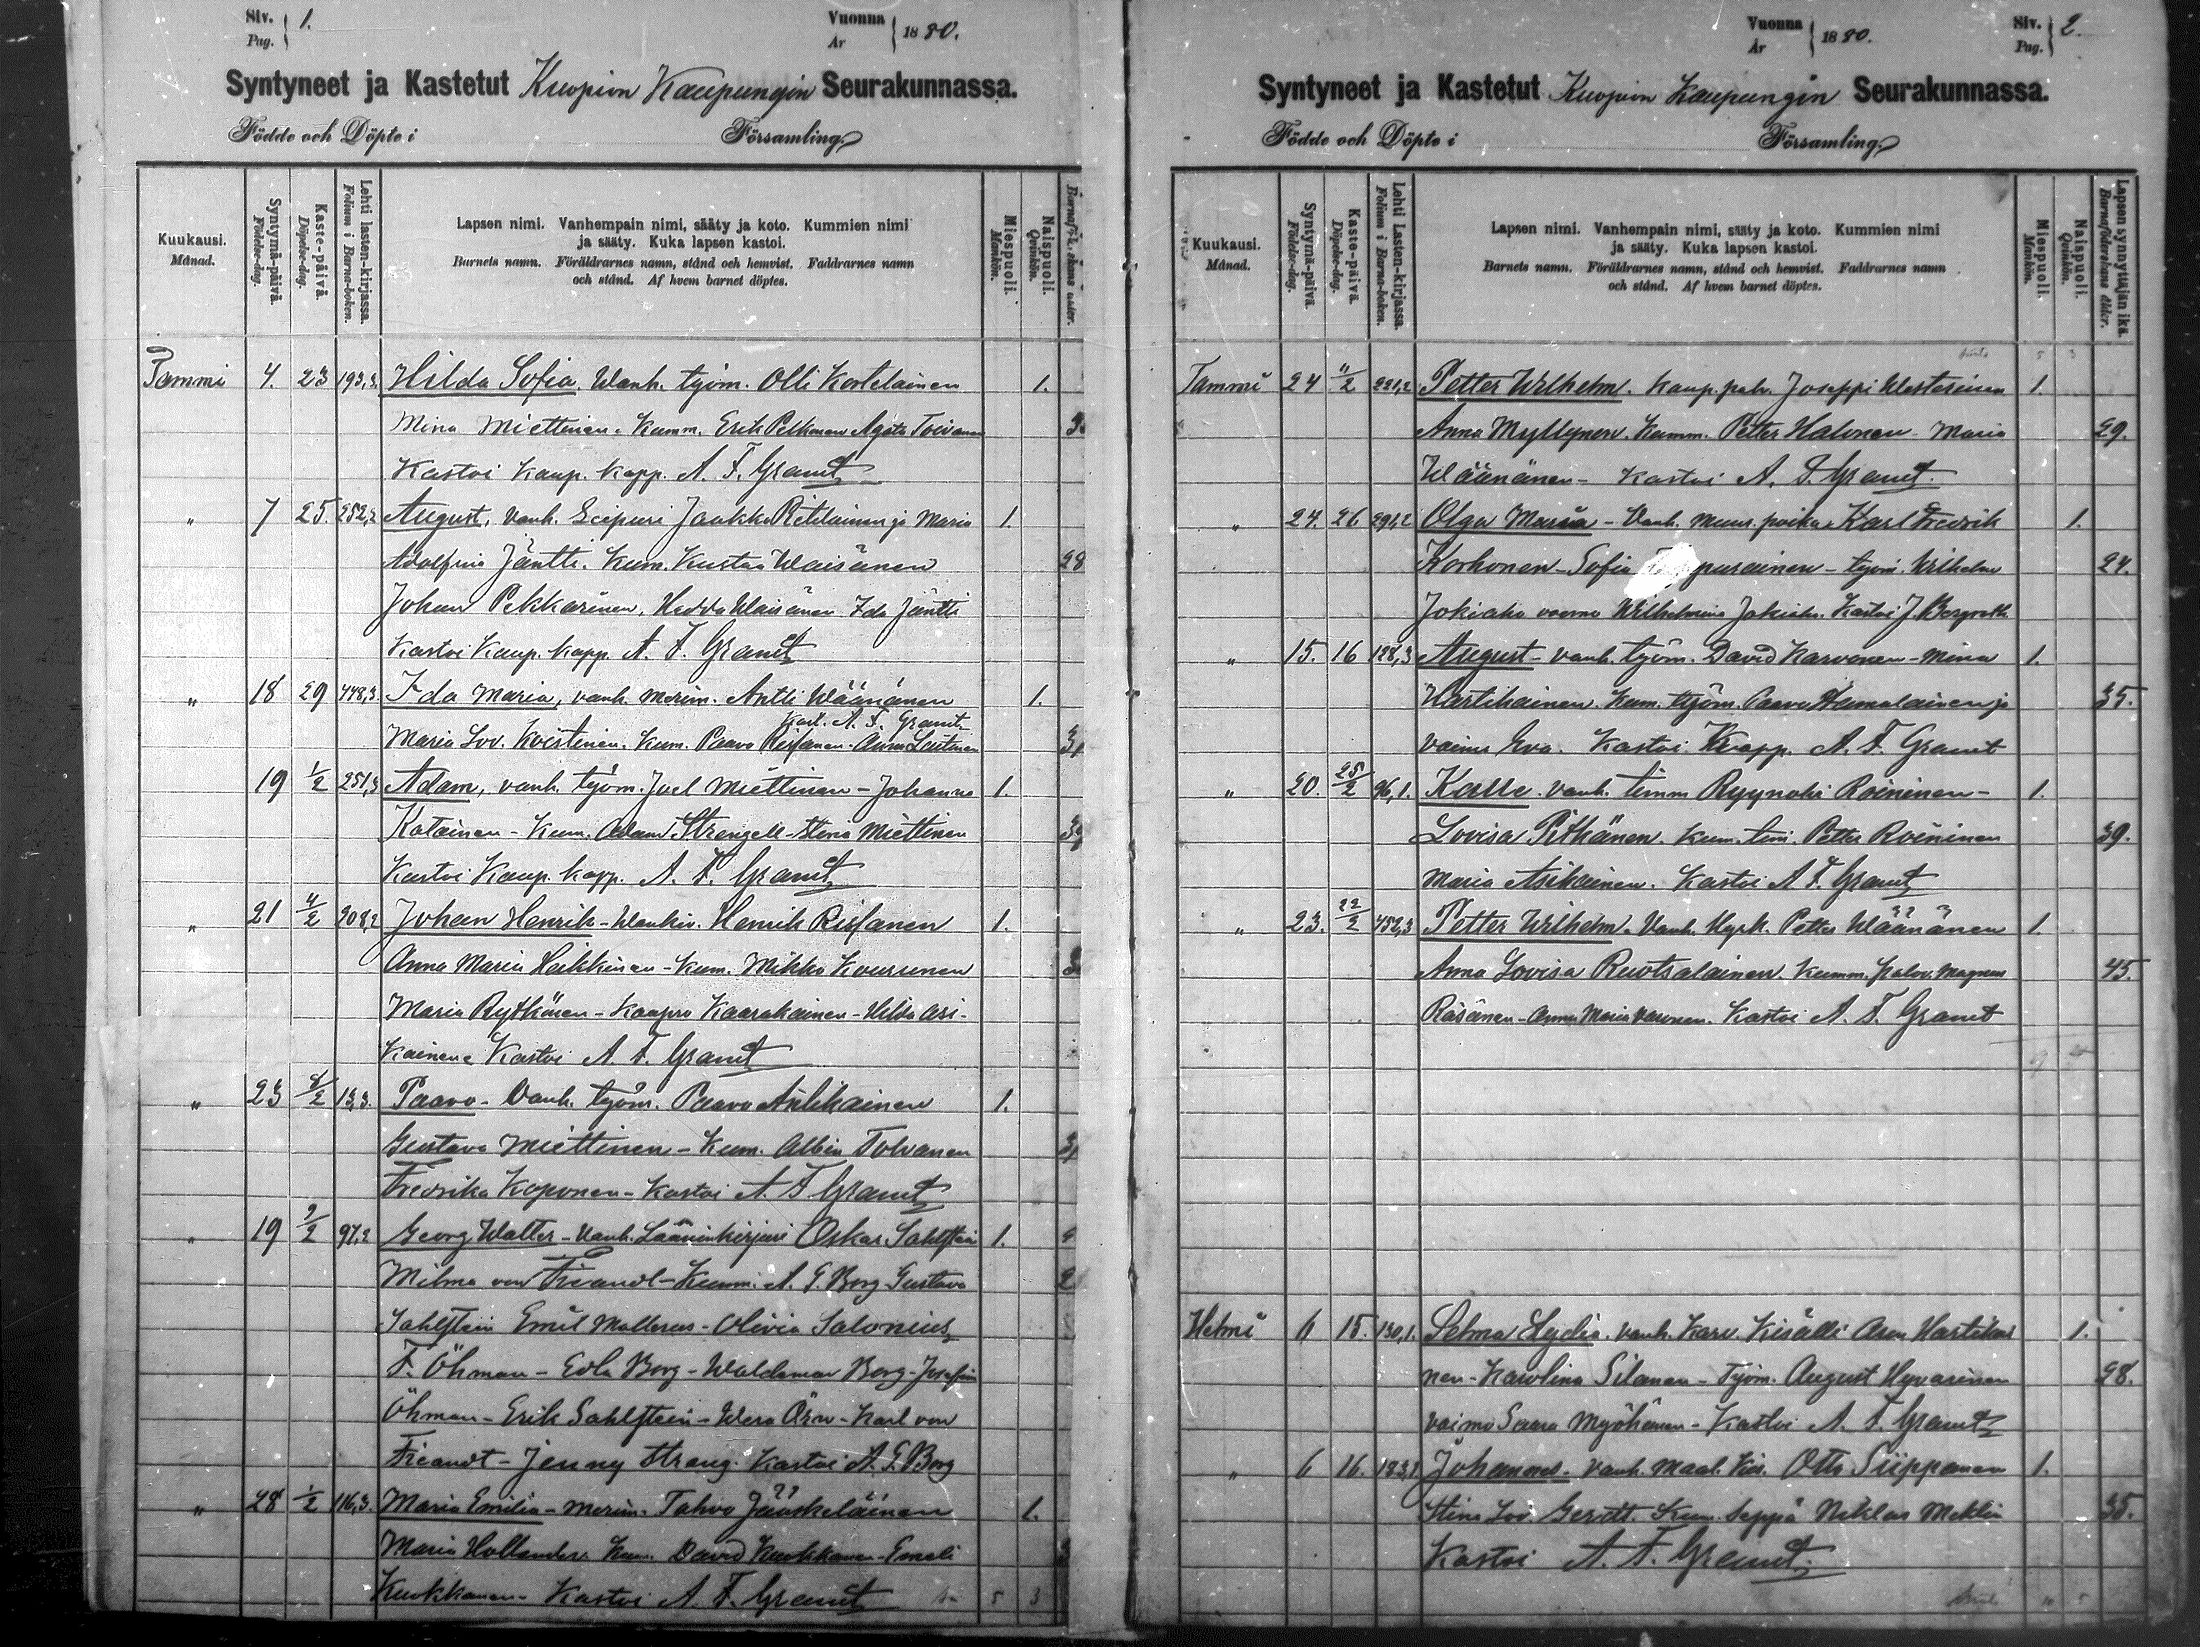 Siv. 1.
Pag.
Vuonna 1880.
År
Syntyneet ja Kastetut Kuopion Kaupungin Seurakunnassa.
Födde och Döpte i Församling.
Kuukausi.
Månad.
Syntymä-päivä.
Födelse-dag.
Kaste-päivä.
Döpelse-dag.
Lehti lasten-kirjassa.
Folium i Barna-boken.
Lapsen nimi. Vanhempain nimi, sääty ja koto. Kummien nimi
ja sääty. Kuka lapsen kastoi.
Barnets namn. Föräldrarnes namn, stånd och hemvist. Faddrarnes namn
och stånd. Af hvem barnet döptes.
Miespuoli.
Mankön.
Naispuoli.
Qvinkön.
Tammi 4. 23 193,3. Hilda Sofia. Wanh. työm. Olli Kortelainen 1.
Mina Miettinen. Kumm. Erik Pelkonen Agata Toivanen
Kastoi Kaup. kapp. A. F. Granit
" 7 25. 252,2 August, vanh. Jaakko ja Maria 1.
Adolfina Jäntti. Kum. Kustaa Waisänen 28
Johan Pekkarinen, Hedda Waisänen Ida Jäntti
Kastoi Kaup. kapp. A. F. Granit
" 18 29 448,3. Ida Maria, vanh. merim. Antti Wäänänen 1.
Kast. A. F. Granit
Maria Lov. Koistinen. Kum. Paavo Rissanen. Anna
19 1/2 251,3 Adam, vanh. työm. Joel Miettinen - Johanna 1.
Katainen - Kum. Adam Strengell - Miettinen
Kastoi Kaup. kapp. A. F. Granit
" 21 4/2 208,2 Johan Henrik - Henrik Rissanen 1.
Anna Maria Heikkinen - Kum. Mikko
Maria Rytkönen - Kaapro Kaarakainen - Hilda Asi-
kainen. Kastoi A. F. Granit
" 23 8/2 13,3. Paavo - Vanh. työm. Paavo 1.
Gustava Miettinen - Kum. Albin Tolvanen
Fredrika Koponen - Kastoi A. F. Granit
" 19 9/2 97,2 Georg Walter - Vanh. Lääninkirjuri Oskar Sahlstein 1.
Milma von Fieandt - Kumm. A. G. Borg Gustava
Sahlstein Emil Molterus - Olivia Salonius
F. Öhman - Edla Borg - Waldemar Borg - Josefina
Öhman - Erik Sahlstein - Wera Örn - Karl von
Fieandt - Jenny Strang. Kastoi A. G. Borg
" 28 1/2 116,3. Maria Emilia - Merim. Tahvo Jääskeläinen 1.
Maria Hollander. Kum. David Kuokkanen - Emeli
Kuokkanen - Kastoi A. F. Granit 5 3
Vuonna 1880.
År
Siv. 2.
Pag.
Syntyneet ja Kastetut Kuopion Kaupungin Seurakunnassa.
Födde och Döpte i Församling.
Kuukausi.
Månad.
Syntymä-päivä.
Födelse-dag.
Kaste-päivä.
Döpelse-dag.
Lehti Lasten-kirjassa.
Folium i Barna-boken.
Lapsen nimi. Vanhempain nimi, sääty ja koto. Kummien nimi
ja sääty. Kuka lapsen kastoi.
Barnets namn. Föräldrarnes namn, stånd och hemvist. Faddrarnes namn
och stånd. Af hvem barnet döptes.
Miespuoli.
Mankön.
Naispuoli.
Qvinkön.
Lapsen synnyttäjän ikä.
Barnaföderskans ålder.
5 3
Tammi 24 11/2 221,2 Petter Wilhelm. Kaup. palv. Joseppi 1.
Anna Myllynen. Kumm. Peter Halonen - Maria 29.
Wäänänen - Kastoi A. F. Granit.
" 24. 26 291,2 Olga Maria - Vanh. muur. poika Karl Fredrik 1.
Korhonen - Sofia - työm. Wilhelm 24.
Jokiaho vaimo Wilhelmina Jokiaho. Kastoi J. Bergroth
" 15. 16 128,3 August - vanh. työm. David Karvonen - Mina 1.
Hartikainen. Kum. työm. Paavo Hämäläinen ja 35.
vaimo Eva. Kastoi K. kapp. A. F. Granit
" 20. 25/2 96,1. Kalle. vanh. timm. Ryynoki Roininen - 1.
Lovisa Pitkänen. Kum. tim. Petter Roininen 39.
Maria Asikainen. Kastoi A F. Granit
" 23. 22/2 452,3 Petter Wilhelm. Vanh. Hyrk. Petter Wäänänen 1.
Anna Lovisa Ruotsalainen Kumm. palv. Magnus 45.
Räsänen - Anna Maria Varonen. Kastoi A. F. Granit
Helmi 6 15. 130,1. Selma Lydia. vanh. Karv. Kisälli Aron Hartikai- 1.
nen - Karolina Silanen - Työm. August Hyvärinen 28.
vaimo Saara Myöhänen - Kastoi A. F. Granit
" 6 16. Johannes. vanh. maal. kis. Otto Siippanen 1.
Stina Lov. Kum. seppä Niklas Meklin 35.
Kastoi A. F. Granit.